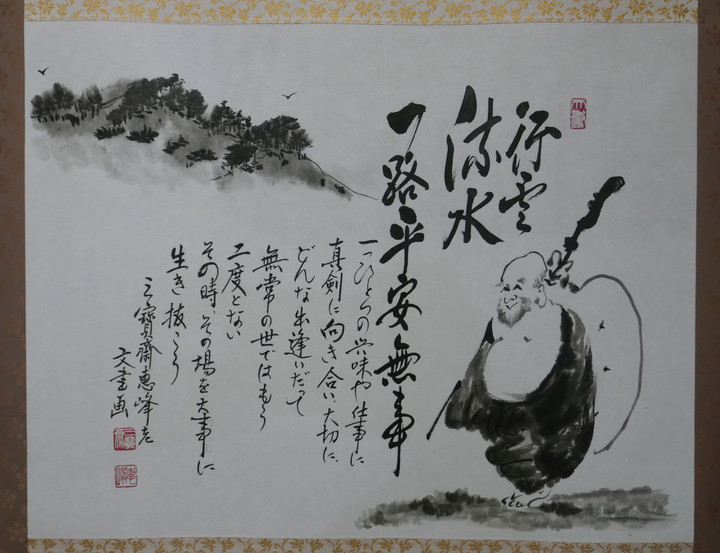 行雲
流水
一路平安無事
一つひとつの興味や仕事に
真剣に向き合い、大切に、
どんな出逢いだって
無常の世ではもう
二度とない
その時、その場を大事に
生き抜こう
三寶齋惠峰老
文書画